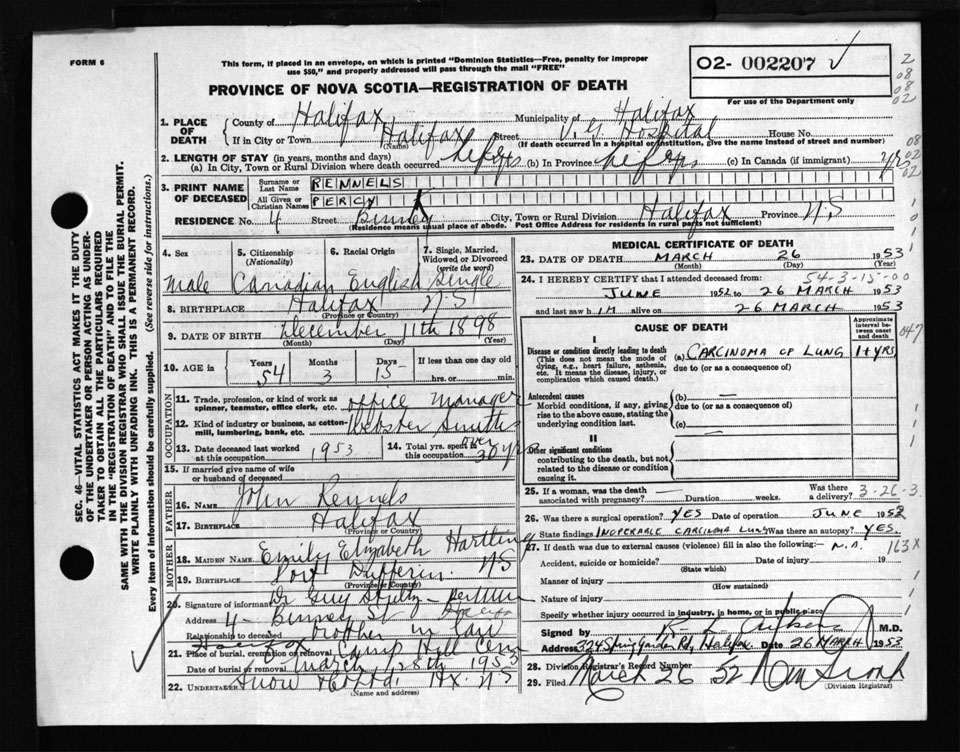 FORM 6
This form, if placed in an envelope, on which is printed "Dominion Statistics—Free, penalty for improper
use $50," and properly addressed will pass through the mail "FREE"
02- 002207 ✓
PROVINCE OF NOVA SCOTIA—REGISTRATION OF DEATH
For use of the Department only
2
08
08
02
1. PLACE OF DEATH
County of Halifax Municipality of Halifax
If in City or Town Halifax Street V.G. Hospital House No.
(Name) (If death occurred in a hospital or institution, give the name instead of street and number)
2. LENGTH OF STAY (in years, months and days)
(a) In City, Town or Rural Division where death occurred (b) In Province (c) In Canada (if immigrant)
08
02
02
3. PRINT NAME OF DECEASED
Surname or Last Name RENNELS
All Given or Christian Names PERCY
RESIDENCE No. 4 Street Binney City, Town or Rural Division Halifax Province N.S
(Residence means usual place of abode. Post Office Address for residents in rural parts not sufficient)
4. Sex Male
5. Citizenship (Nationality) Canadian
6. Racial Origin English
7. Single, Married, Widowed or Divorced (write the word) Single
8. BIRTHPLACE Halifax N.S
(Province or Country)
9. DATE OF BIRTH December 11th 1898
(Month) (Day) (Year)
10. AGE in Years 54 Months 3 Days 15 If less than one day old
hrs. or min.
OCCUPATION
11. Trade, profession, or kind of work as spinner, teamster, office clerk, etc. office Manager
12. Kind of industry or business, as cotton-mill, lumbering, bank, etc. Webster Smith
13. Date deceased last worked at this occupation 1953
14. Total yrs. spent in this occupation over 30 yrs
15. If married give name of wife or husband of deceased
FATHER
16. NAME John Rennels
17. BIRTHPLACE Halifax
(Province or Country)
MOTHER
18. MAIDEN NAME Emily Elizabeth
19. BIRTHPLACE Port Dufferin N.S
(Province or Country)
20. Signature of informant Dr Guy
Address 4- Binney St
Relationship to deceased brother in law
21. Place of burial, cremation or removal Camp Hill Cem
Date of burial or removal March 28th 1953
22. UNDERTAKER Snow Hx. N.S
(Name and address)
MEDICAL CERTIFICATE OF DEATH
23. DATE OF DEATH MARCH 26 1953
(Month) (Day) (Year)
24. I HEREBY CERTIFY that I attended deceased from: 54-3-15-00
JUNE 1952 to 26 MARCH 1953
and last saw h IM alive on 26 MARCH 1953
CAUSE OF DEATH
Approximate interval between onset and death
047
I
Disease or condition directly leading to death (a) CARCINOMA OF LUNG 1+ YRS
(This does not mean the mode of dying, e.g., heart failure, asthenia, etc. It means the disease, injury, or complication which caused death.)
due to (or as a consequence of)
Antecedent causes (b) —
Morbid conditions, if any, giving rise to the above cause, stating the underlying condition last.
due to (or as a consequence of)
(c) —
II
Other significant conditions contributing to the death, but not related to the disease or condition causing it.
25. If a woman, was the death associated with pregnancy? — Duration weeks. Was there a delivery? 3-26-3
26. Was there a surgical operation? YES Date of operation JUNE 1952
State findings INOPERABLE CARCINOMA LUNG Was there an autopsy? YES
27. If death was due to external causes (violence) fill in also the following:— N.A. 163X
Accident, suicide or homicide? Date of injury 19
(State which)
Manner of injury
(How sustained)
Nature of injury
Specify whether injury occurred in industry, in home, or in public place
Signed by M.D.
Address 324 Spring Garden Rd, Halifax Date 26 MARCH 1953
28. Division Registrar's Record Number
29. Filed March 26 52
(Division Registrar)
SEC. 46—VITAL STATISTICS ACT MAKES IT THE DUTY
OF THE UNDERTAKER OR PERSON ACTING AS UNDER-
TAKER TO OBTAIN ALL THE PARTICULARS REQUIRED
IN THE "REGISTRATION OF DEATH" AND TO FILE THE
SAME WITH THE DIVISION REGISTRAR WHO SHALL ISSUE THE BURIAL PERMIT.
WRITE PLAINLY WITH UNFADING INK. THIS IS A PERMANENT RECORD.
Every item of information should be carefully supplied. (See reverse side for instructions.)